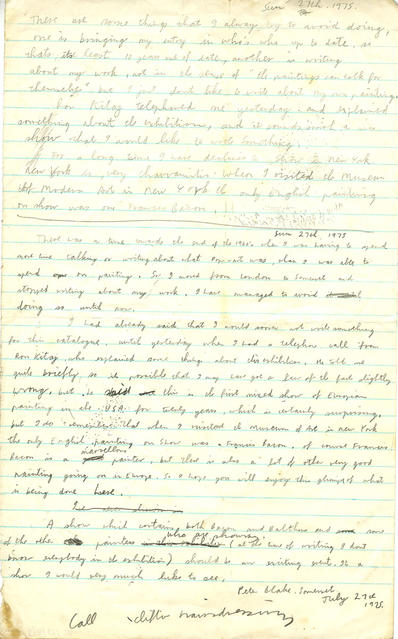 Sun 27th, 1975.
There are some things that I always try to avoid doing,
one is bringing my entry in who's who up to date, so
thats at least 10 years out of date, another is writing
about my work, not in the sense of "the paintings can talk for
themselves" but I just dont like to write about my own paintings.
Ron Kitaj telephoned me yesterday and explained
something about the exhibition, and it sounds such a nice
show that I would like to write something.
For a long time I have New York
New York is very chauvinistic. When I visited the Museum
of Modern Art in New York the only English painting
on show was one Francis Bacon,
Sun 27th 1975
There was a time towards the end of the 1960's when I was having to spend
more time talking or writing about what Pop-art was, than I was able to
spend on painting. So I moved from London to Somerset and
stopped writing about my work. I have managed to avoid
doing so until now.
I had already said that I would sooner not write something
for this catalogue, until yesterday when I had a telephone call from
Ron Kitaj, who explained some things about the exhibition. He told me
quite briefly, so it possible that I may have got a few of the facts slightly
wrong, but, he said this is the first mixed show of European
painting in the USA for twenty years, which is certainly surprising,
but I do remember that when I visited the Museum of Art in New York
the only English painting on show was a Francis Bacon, of course Francis
Bacon is a marvellous painter, but there is also a lot of other very good
painting going on in Europe. So I hope you will enjoy this glimpse of what
is being done here.
A show which contains both Bacon and Balthus and some
of the other painters who are showing (at the time of writing I dont
know everybody in the exhibition) should be an exciting event. Its a
show I would very much like to see.
Pete Blake. Somerset
July 27th
1975.
Call Clifton